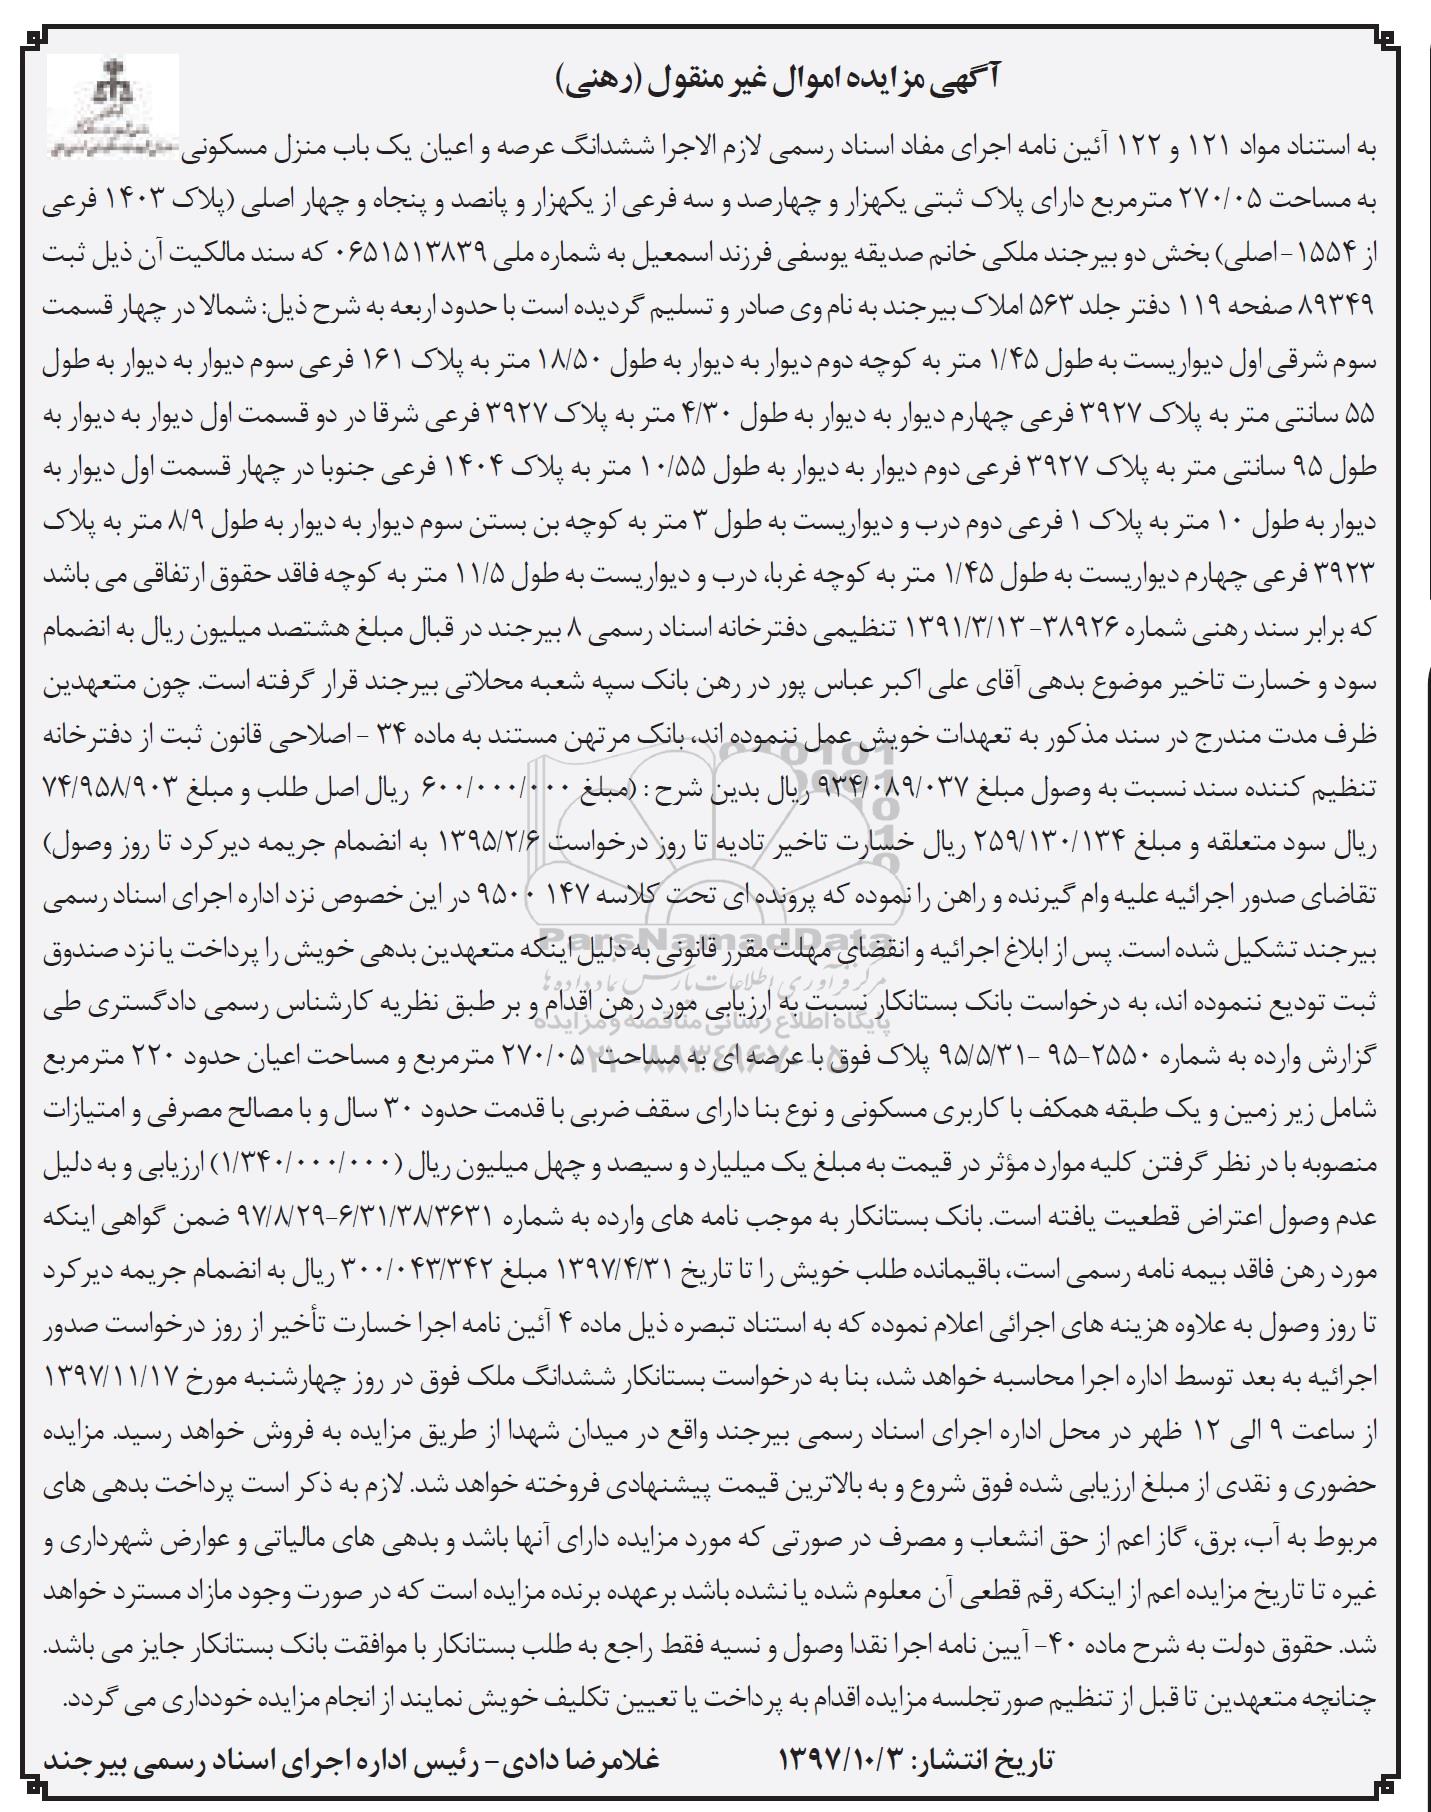 آگهی مزایده اموال غیر منقول (رهنی)
به استناد مواد ۱۲۱ و ۱۲۲ آئین نامه اجرای مفاد اسناد رسمی لازم الاجرا ششدانگ عرصه و اعیان یک باب منزل مسکونی
به مساحت ۲۷۰/۰۵ مترمربع دارای پلاک ثبتی یکهزار و چهارصد و سه فرعی از یکهزار و پانصد و پنجاه و چهار اصلی (پلاک ۱۴۰۳ فرعی
از ۱۵۵۴- اصلی) بخش دو بیرجند ملکی خانم صدیقه یوسفی فرزند اسمعیل به شماره ملی ۰۶۵۱۵۱۳۸۳۹ که سند مالکیت آن ذیل ثبت
۸۹۳۴۹ صفحه ۱۱۹ دفتر جلد ۵۶۳ املاک بیرجند به نام وی صادر و تسلیم گردیده است با حدود اربعه به شرح ذیل: شمالا در چهار قسمت
سوم شرقی اول دیواریست به طول ۱/۴۵ متر به کوچه دوم دیوار به دیوار به طول ۱۸/۵۰ متر به پلاک ۱۶۱ فرعی سوم دیوار به دیوار به طول
۵۵ سانتی متر به پلاک ۳۹۲۷ فرعی چهارم دیوار به دیوار به طول ۴/۳۰ متر به پلاک ۳۹۲۷ فرعی شرقا در دو قسمت اول دیوار به دیوار به
طول ۹۵ سانتی متر به پلاک ۳۹۲۷ فرعی دوم دیوار به دیوار به طول ۱۰/۵۵ متر به پلاک ۱۴۰۴ فرعی جنوبا در چهار قسمت اول دیوار به
دیوار به طول ۱۰ متر به پلاک ۱ فرعی دوم درب و دیواریست به طول ۳ متر به کوچه بن بستن سوم دیوار به دیوار به طول ۸/۹ متر به پلاک
۳۹۲۳ فرعی چهارم دیواریست به طول ۱/۴۵ متر به کوچه غربا، درب و دیواریست به طول ۱۱/۵ متر به کوچه فاقد حقوق ارتفاقی می باشد
که برابر سند رهنی شماره ۳۸۹۲۶- ۱۳۹۱/۳/۱۳ تنظیمی دفترخانه اسناد رسمی ۸ بیرجند در قبال مبلغ هشتصد میلیون ریال به انضمام
سود و خسارت تاخیر موضوع بدهی آقای علی اکبر عباس پور در رهن بانک سپه شعبه محلاتی بیرجند قرار گرفته است. چون متعهدین
ظرف مدت مندرج در سند مذکور به تعهدات خویش عمل ننموده اند، بانک مرتهن مستند به ماده ۳۴ - اصلاحی قانون ثبت از دفترخانه
تنظیم کننده سند نسبت به وصول مبلغ ۹۳۴/۰۸۹/۰۳۷ ریال بدین شرح : (مبلغ ۶۰۰/۰۰۰/۰۰۰ ریال اصل طلب و مبلغ ۷۴/۹۵۸/۹۰۳
ریال سود متعلقه و مبلغ ۲۵۹/۱۳۰/۱۳۴ ریال خسارت تاخیر تادیه تا روز درخواست ۱۳۹۵/۲/۶ به انضمام جریمه دیرکرد تا روز وصول)
تقاضای صدور اجرائیه علیه وام گیرنده و راهن را نموده که پرونده ای تحت کلاسه ۱۴۷ ۹۵۰۰ در این خصوص نزد اداره اجرای اسناد رسمی
بیرجند تشکیل شده است. پس از ابلاغ اجرائیه و انقضای مهلت مقرر قانونی به دلیل اینکه متعهدین بدهی خویش را پرداخت یا نزد صندوق
ثبت تودیع ننموده اند، به درخواست بانک بستانکار نسبت به ارزیابی مورد رهن اقدام و بر طبق نظریه کارشناس رسمی دادگستری طی
گزارش وارده به شماره ۲۵۵۰-۹۵ -۹۵/۵/۳۱ پلاک فوق با عرصه ای به مساحت ۲۷۰/۰۵ مترمربع و مساحت اعیان حدود ۲۲۰ مترمربع
شامل زیر زمین و یک طبقه همکف با کاربری مسکونی و نوع بنا دارای سقف ضربی با قدمت حدود ۳۰ سال و با مصالح مصرفی و امتیازات
منصوبه با در نظر گرفتن کلیه موارد مؤثر در قیمت به مبلغ یک میلیارد و سیصد و چهل میلیون ریال (۱/۳۴۰/۰۰۰/۰۰۰) ارزیابی و به دلیل
عدم وصول اعتراض قطعیت یافته است. بانک بستانکار به موجب نامه های وارده به شماره ۶/۳۱/۳۸/۳۶۳۱-۹۷/۸/۲۹ ضمن گواهی اینکه
مورد رهن فاقد بیمه نامه رسمی است، باقیمانده طلب خویش را تا تاریخ ۱۳۹۷/۴/۳۱ مبلغ ۳۰۰/۰۴۳/۳۴۲ ریال به انضمام جریمه دیرکرد
تا روز وصول به علاوه هزینه های اجرائی اعلام نموده که به استناد تبصره ذیل ماده ۴ آئین نامه اجرا خسارت تأخیر از روز درخواست صدور
اجرائیه به بعد توسط اداره اجرا محاسبه خواهد شد، بنا به درخواست بستانکار ششدانگ ملک فوق در روز چهارشنبه مورخ ۱۳۹۷/۱۱/۱۷
از ساعت ۹ الی ۱۲ ظهر در محل اداره اجرای اسناد رسمی بیرجند واقع در میدان شهدا از طریق مزایده به فروش خواهد رسید. مزایده
حضوری و نقدی از مبلغ ارزیابی شده فوق شروع و به بالاترین قیمت پیشنهادی فروخته خواهد شد. لازم به ذکر است پرداخت بدهی های
مربوط به آب، برق، گاز اعم از حق انشعاب و مصرف در صورتی که مورد مزایده دارای آنها باشد و بدهی های مالیاتی و عوارض شهرداری و
غیره تا تاریخ مزایده اعم از اینکه رقم قطعی آن معلوم شده یا نشده باشد برعهده برنده مزایده است که در صورت وجود مازاد مسترد خواهد
شد. حقوق دولت به شرح ماده ۴۰- آیین نامه اجرا نقدا وصول و نسیه فقط راجع به طلب بستانکار با موافقت بانک بستانکار جایز می باشد.
چنانچه متعهدین تا قبل از تنظیم صورتجلسه مزایده اقدام به پرداخت یا تعیین تکلیف خویش نمایند از انجام مزایده خودداری می گردد.
تاریخ انتشار: ۱۳۹۷/۱۰/۳ غلامرضا دادی- رئیس اداره اجرای اسناد رسمی بیرجند
ParsNamadData
مرکز فرآوری اطلاعات پارس نماد داده ها
پایگاه اطلاع رسانی مناقصه و مزایده